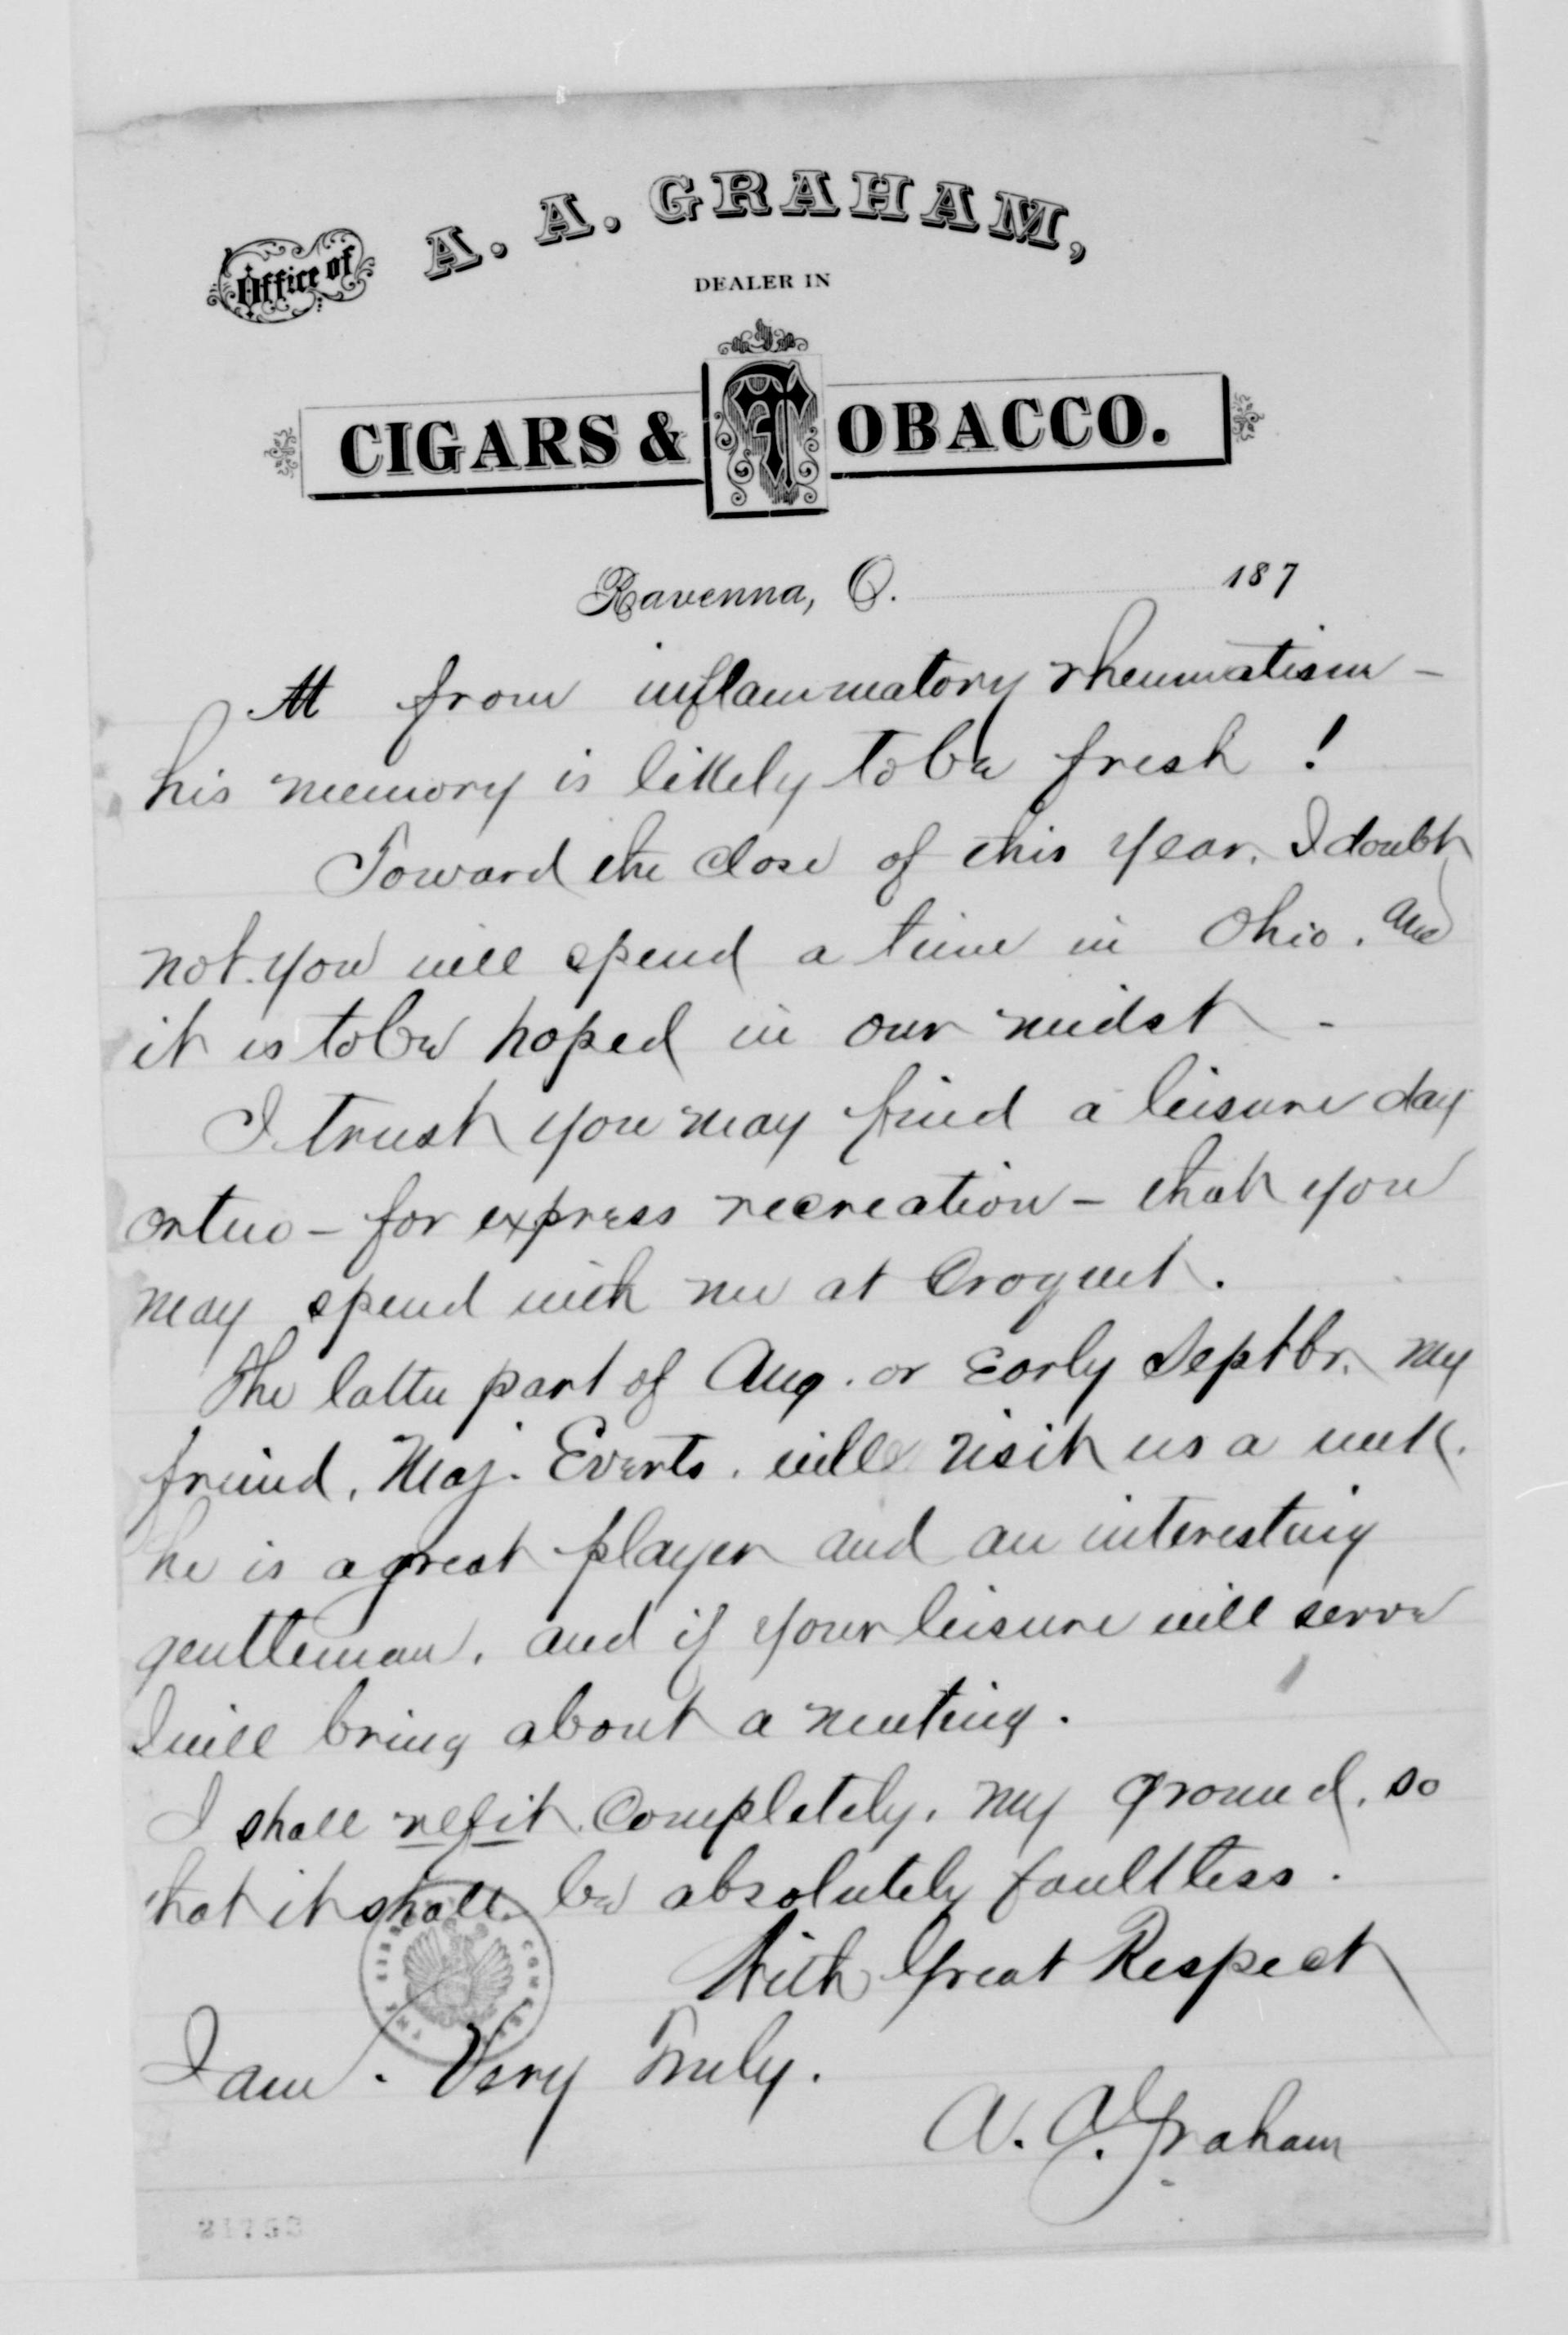 Office of A. A. GRAHAM,
DEALER IN
CIGARS & TOBACCO.
Ravenna, O. 187
from inflammatory rheumatism -
his memory is likely to be fresh !
Toward the close of this year, I doubt
not you will spend a time in Ohio. and
it is to be hoped in our midst -
I trust you may find a leisure day
or two - for express recreation - that you
may spend with me at Croquet.
The latter part of Aug. or Early Septbr. my
friend, Maj. Everts, will visit us a week.
he is a great player and an interesting
gentleman, and if your leisure will serve
I will bring about a meeting.
I shall refit completely, my ground, so
that it shall be absolutely faultless.
With Great Respect
I am. Very Truly.
A. A. Graham
THE LIBRARY CONGRESS